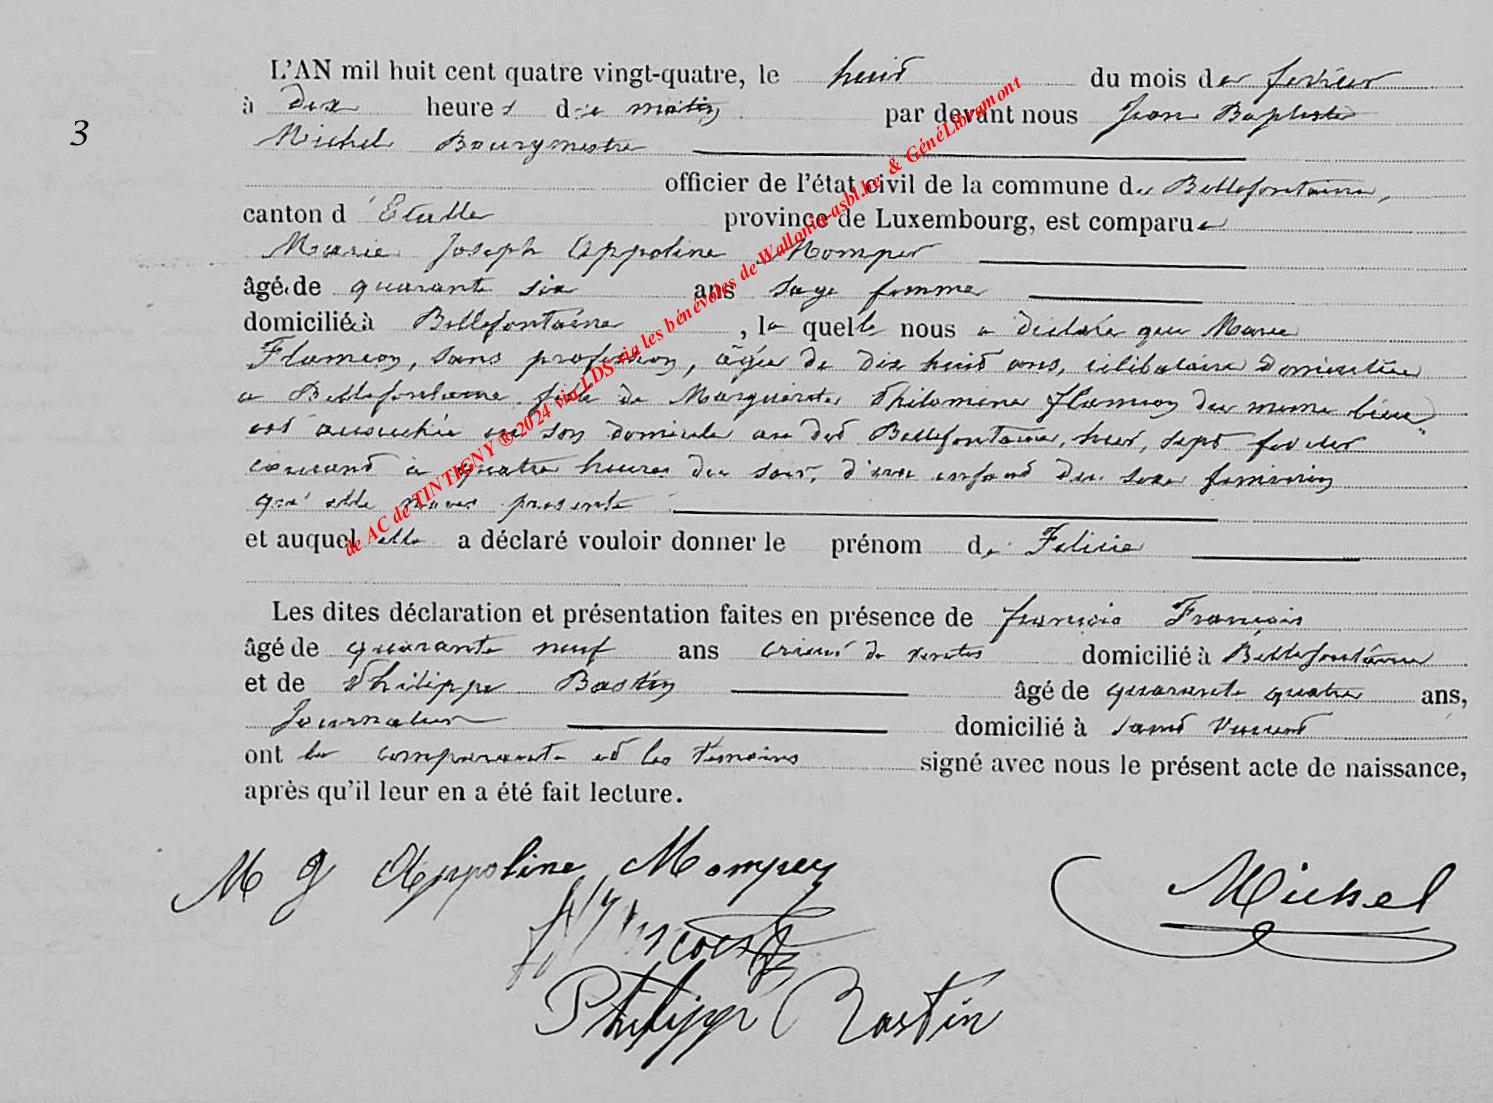 L'AN mil huit cent quatre vingt-quatre, le huit du mois de fevrier
à dix heures du matin par devant nous Jean Baptiste
3
Michel Bourgmestre
officier de l'état civil de la commune de Bellefontaine,
canton d'Etalle province de Luxembourg, est comparue
Marie Joseph Appoline Momper
âgé de quarante six ans sage femme
domicilié à Bellefontaine, laquelle nous a déclaré que Marie
Flamion, sans profession, âgée de dix huit ans, célibataire domiciliée
a Bellefontaine fille de Marguerite Philomene flamion du meme lieu,
est accouchée en son domicile au dit Bellefontaine, hier, sept fevrier
courant à quatre heures du soir, d'un enfant du sexe feminin
qu'elle nous presente
et auquel elle a déclaré vouloir donner le prénom de Felicie
Les dites déclaration et présentation faites en présence de françois François
âgé de quarante neuf ans crieur de ventes domicilié à Bellefontaine
et de Philippe Bastin âgé de quarante quatre ans,
Journalier domicilié à Saint Vincent
ont la comparante et les temoins signé avec nous le présent acte de naissance,
après qu'il leur en a été fait lecture.
M J Appoline Momper
Michel
Philippe Bastin
de AC de TINTIGNY ® 2024 via LDS via les bénévoles de Wallonia-asbl.be & GénéLibramont